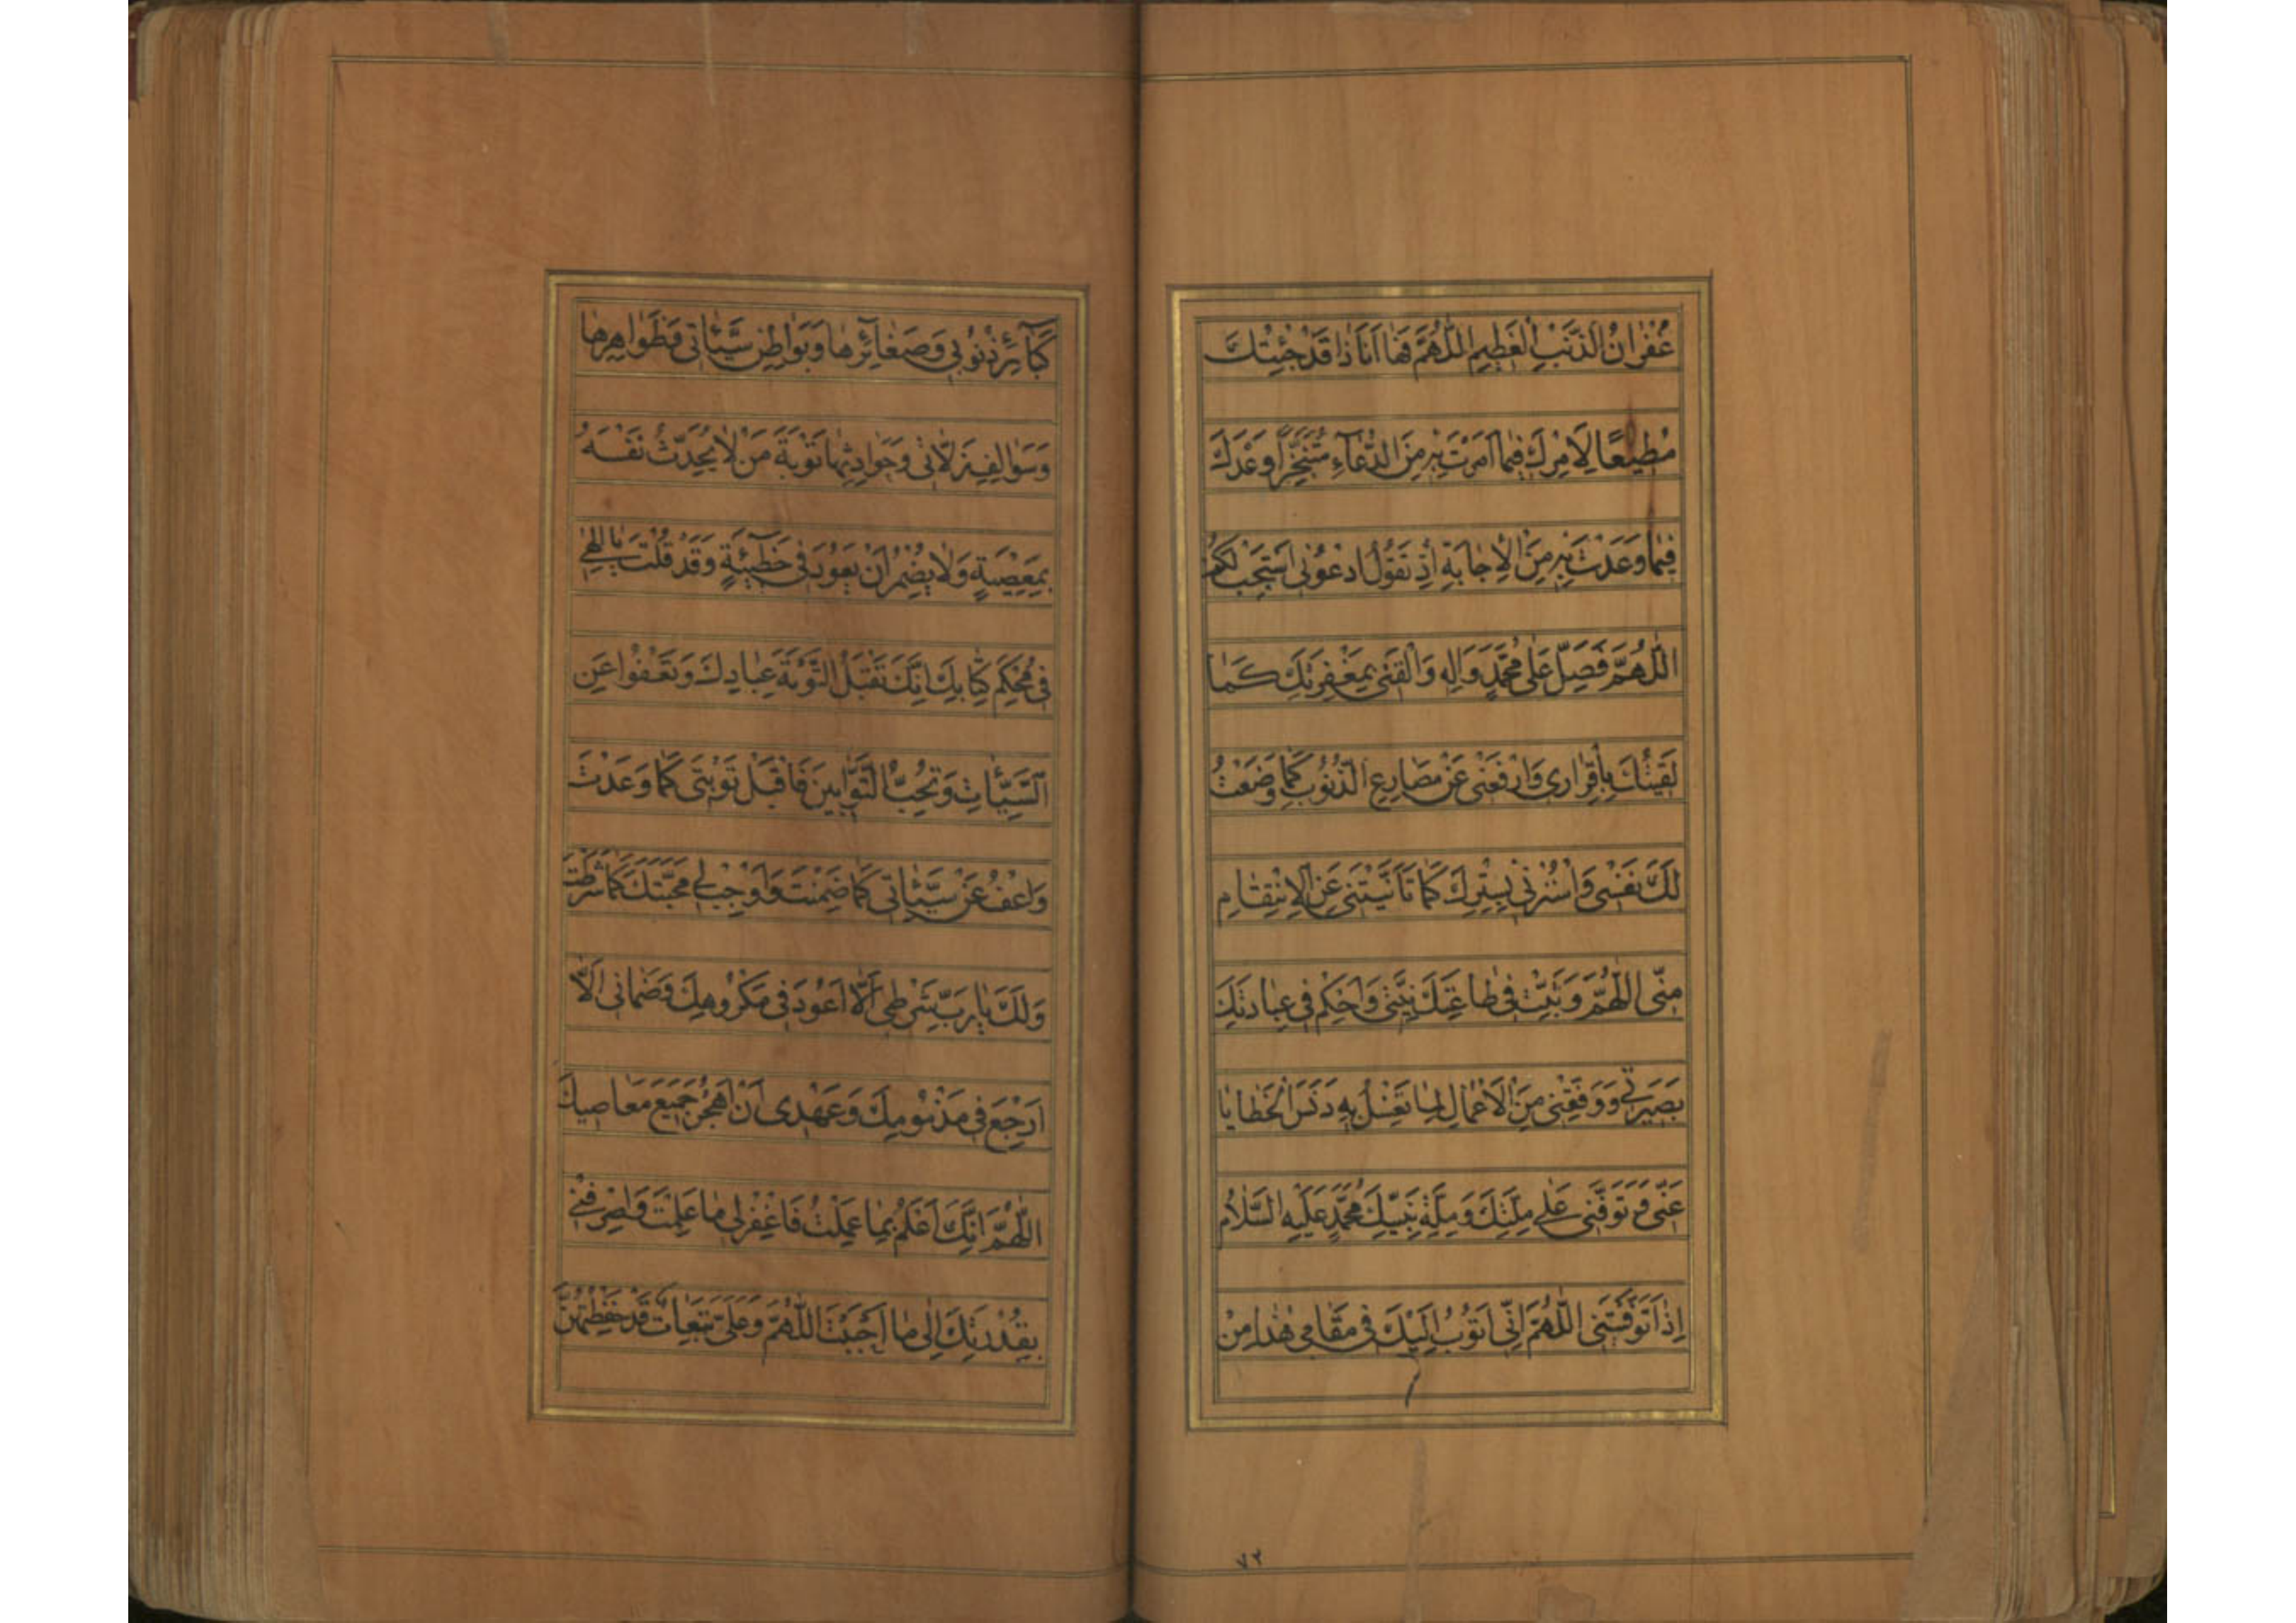 غُفْرَانُ الذَّنْبِ الْعَظِيمِ اللّٰهُمَّ فَهَا اَنَا ذَا قَدْ جِئْتُكَ
مُطِيعًا لِاَمْرِكَ فِيمَا اَمَرْتَ بِهِ مِنَ الدُّعَاءِ مُتَنَجِّزًا وَعْدَكَ
فِيمَا وَعَدْتَ بِهِ مِنَ الْاِجَابَةِ اِذْ تَقُولُ ادْعُونِي اَسْتَجِبْ لَكُمْ
اللّٰهُمَّ فَصَلِّ عَلٰى مُحَمَّدٍ وَاٰلِهِ وَالْقَنِي بِمَغْفِرَتِكَ كَمَا
لَقِيتُكَ بِاِقْرَارِي وَارْفَعْنِي عَنْ مَصَارِعِ الذُّنُوبِ كَمَا وَضَعْتُ
لَكَ نَفْسِي وَاسْتُرْنِي بِسِتْرِكَ كَمَا تَاَنَّيْتَنِي عَنِ الْاِنْتِقَامِ
مِنِّي اللّٰهُمَّ وَثَبِّتْ فِي طَاعَتِكَ نِيَّتِي وَاَحْكِمْ فِي عِبَادَتِكَ
بَصِيرَتِي وَوَفِّقْنِي مِنَ الْاَعْمَالِ لِمَا تَغْسِلُ بِهِ دَنَسَ الْخَطَايَا
عَنِّي وَتَوَفَّنِي عَلٰى مِلَّتِكَ وَمِلَّةِ نَبِيِّكَ مُحَمَّدٍ عَلَيْهِ السَّلَامُ
اِذَا تَوَفَّيْتَنِي اللّٰهُمَّ اِنِّي اَتُوبُ اِلَيْكَ فِي مَقَامِي هٰذَا مِنْ
٧٢
كَبَآئِرِ ذُنُوبِي وَصَغَآئِرِهَا وَبَوَاطِنِ سَيِّئَاتِي وَظَوَاهِرِهَا
وَسَوَالِفِ زَلَّاتِي وَحَوَادِثِهَا تَوْبَةَ مَنْ لَا يُحَدِّثُ نَفْسَهُ
بِمَعْصِيَةٍ وَلَا يُضْمِرُ اَنْ يَعُودَ فِي خَطِيئَةٍ وَقَدْ قُلْتَ يَا اِلٰهِي
فِي مُحْكَمِ كِتَابِكَ اِنَّكَ تَقْبَلُ التَّوْبَةَ عِبَادِكَ وَتَعْفُوا عَنِ
السَّيِّئَاتِ وَتُحِبُّ التَّوَّابِينَ فَاقْبَلْ تَوْبَتِي كَمَا وَعَدْتَ
وَاعْفُ عَنْ سَيِّئَاتِي كَمَا ضَمِنْتَ وَاَوْجِبْ لِي مَحَبَّتَكَ كَمَا شَرَطْتَ
وَلَكَ يَا رَبِّ شَرْطِي اَلَّا اَعُودَ فِي مَكْرُوهِكَ وَضَمَانِي اَلَّا
اَرْجِعَ فِي مَذْمُومِكَ وَعَهْدِي اَنْ اَهْجُرَ جَمِيعَ مَعَاصِيكَ
اللّٰهُمَّ اِنَّكَ اَعْلَمُ بِمَا عَمِلْتُ فَاغْفِرْ لِي مَا عَلِمْتَ وَاصْرِفْنِي
بِقُدْرَتِكَ اِلٰى مَا اَحْبَبْتَ اللّٰهُمَّ وَعَلَيَّ تَبِعَاتٌ قَدْ حَفِظْتُهُنَّ